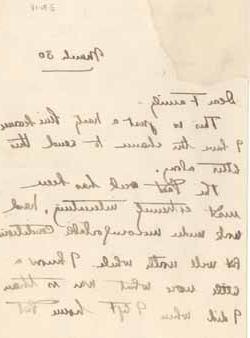 March 30
Dear Family -
This is just a hasty line because
I have the chance to send this
letter along.
The Past week has been
most extremely interesting, hard,
work under uncomfortable conditions
but well worth while I know a
little more what war is than
I did when I left home but